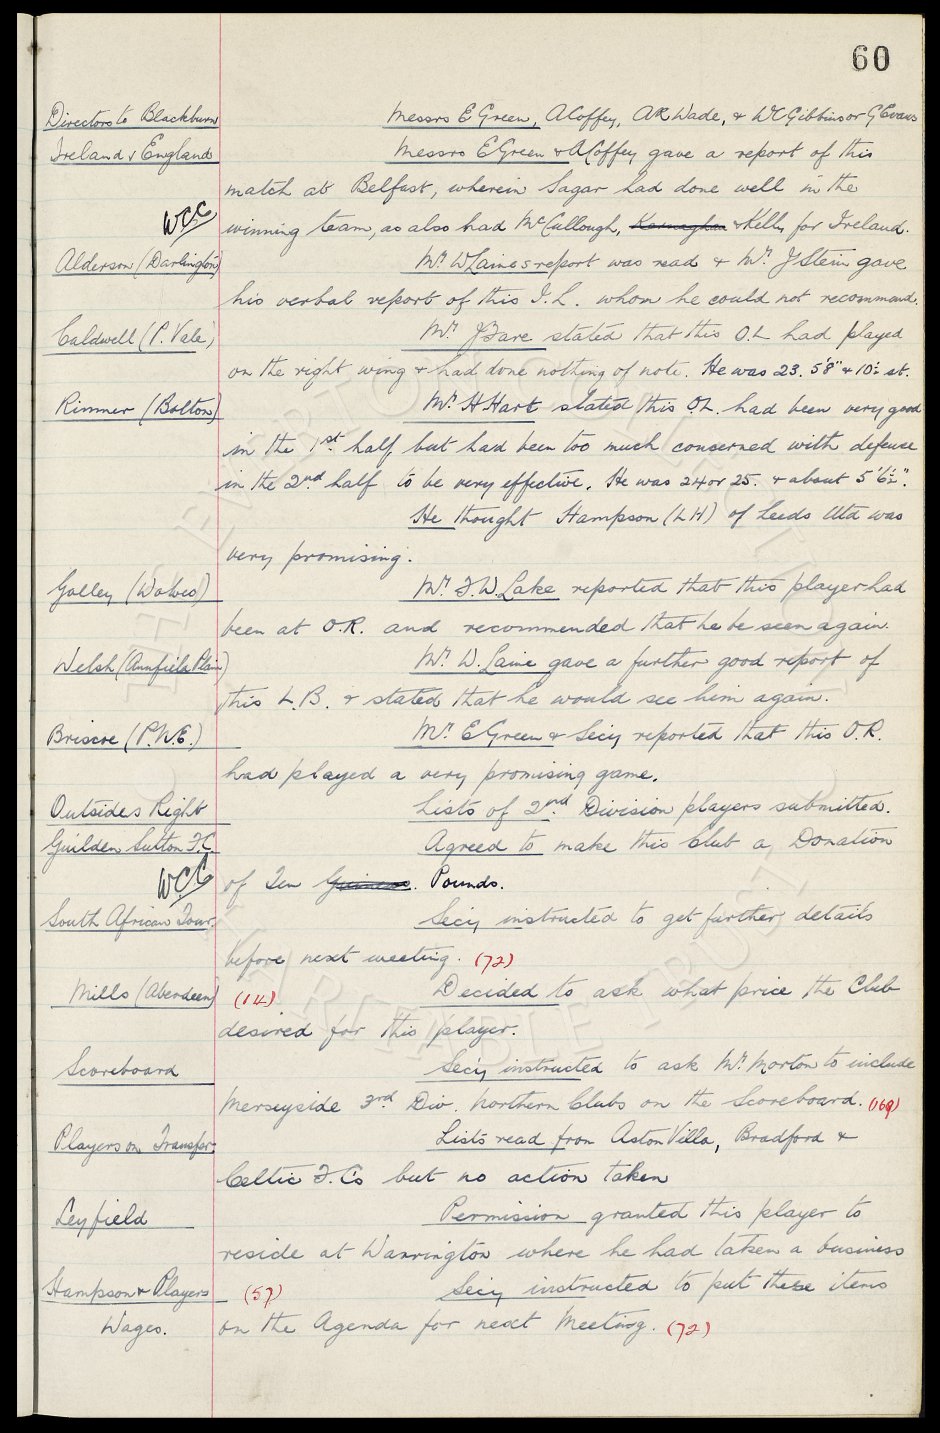 60
Directors to Blackburn Messrs E Green, A Coffey, A R Wade, & W C Gibbins or G Evans
Ireland v England Messrs E Green & A Coffey gave a report of this
match at Belfast, wherein Sagar had done well in the
W.C.C winning team, as also had McCullough, Kernaghan & Kelly for Ireland.
Alderson (Darlington) Mr. W Laine's report was read & Mr. J Stein gave
his verbal report of this I.L. whom he could not recommend.
Caldwell (P. Vale) Mr. J Fare stated that this O.L had played
on the right wing & had done nothing of note. He was 23. 5'8" & 10½ st.
Rimmer (Bolton) Mr. H Hart stated this O.L. had been very good
in the 1st half but had been too much concerned with defence
in the 2nd half to be very effective. He was 24 or 25. & about 5'6½".
He thought Hampson (L H) of Leeds Utd was
very promising.
Galley (Wolves) Mr. F. W. Lake reported that this player had
been at O.R. and recommended that he be seen again.
Welsh (Annfield Plain) Mr. W. Laine gave a further good report of
this L.B. & stated that he would see him again.
Briscoe (P.N.E.) Mr. E Green & Secy reported that this O.R.
had played a very promising game.
Outsides Right Lists of 2nd Division players submitted.
Guilden Sutton F.C. Agreed to make this Club a Donation
W.C.C of Ten Guineas. Pounds.
South African Tour. Secy instructed to get further details
before next meeting. (72)
Mills (Aberdeen) (14) Decided to ask what price the Club
desired for this player.
Scoreboard Secy instructed to ask Mr. Morton to include
Merseyside 3rd Div. Northern Clubs on the Scoreboard. (169)
Players on Transfer. Lists read from Aston Villa, Bradford &
Celtic F.Cs but no action taken
Leyfield Permission granted this player to
reside at Warrington where he had taken a business
Hampson & Players (57) Secy instructed to put these items
Wages. on the Agenda for next Meeting. (72)